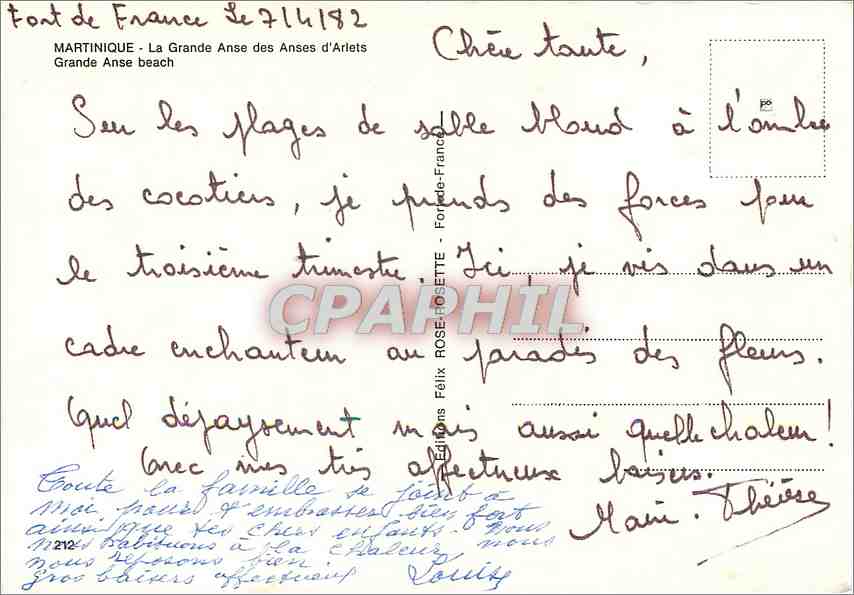 Fort de France Le 7/4/82
MARTINIQUE - La Grande Anse des Anses d'Arlets
Grande Anse beach
Chère tante,
Sur les plages de sable blond à l'ombre
des cocotiers, je prends des forces pour
le troisième trimestre. Ici, je vis dans un
cadre enchanteur au paradis des fleurs.
Quel dépaysement mais aussi quelle chaleur!
Avec mes très affectueux baisers.
Marie-Thérèse
Toute la famille se joint à
moi pour t'embrasser bien fort
ainsi que tes chers enfants. Nous
nous habituons à la chaleur, nous
nous reposons bien.
Gros baisers affectueux Louise
212
Editions Félix ROSE-ROSETTE - Fort-de-France
CPAPHIL